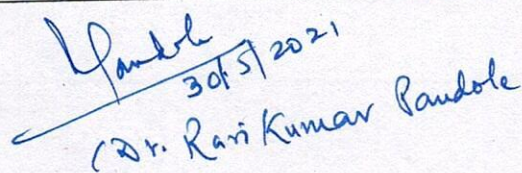 Pandole
30/5/2021
(Dr. Ravi Kumar Pandole